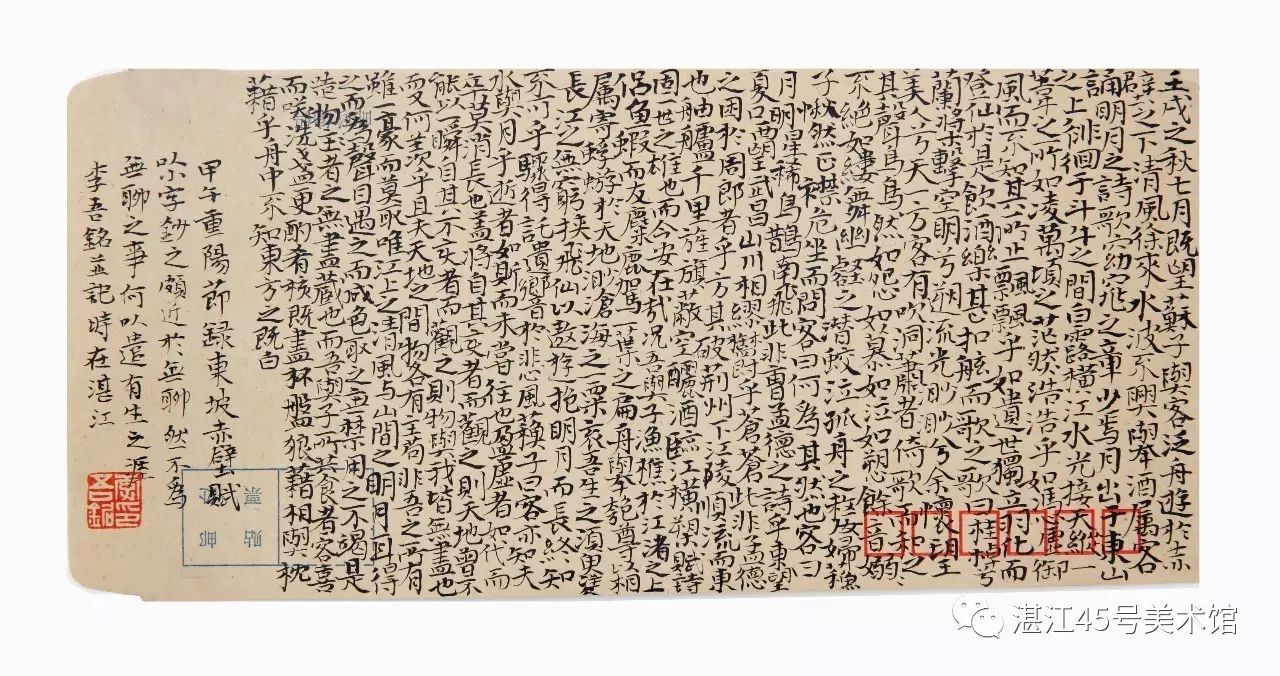 壬戌之秋七月既望蘇子與客泛舟遊於赤
壁之下清風徐來水波不興舉酒屬客
誦明月之詩歌窈窕之章少焉月出于東山
之上徘徊于斗牛之間白露橫江水光接天縱一
葦之所如凌萬頃之茫然浩浩乎如馮虛御
風而不知其所止飄飄乎如遺世獨立羽化而
登仙於是飲酒樂甚扣舷而歌之歌曰桂棹兮
蘭槳擊空明兮溯流光渺渺兮余懷望
美人兮天一方客有吹洞簫者倚歌而和之
其聲烏烏然如怨如慕如泣如訴餘音嫋嫋
不絕如縷舞幽壑之潛蛟泣孤舟之嫠婦蘇
子愀然正襟危坐而問客曰何為其然也客曰
月明星稀烏鵲南飛此非曹孟德之詩乎東望
夏口西望武昌山川相繆鬱乎蒼蒼此非孟德
之困於周郎者乎方其破荊州下江陵順流而東
也舳艫千里旌旗蔽空釃酒臨江橫槊賦詩
固一世之雄也而今安在哉況吾與子漁樵於江渚之上
侶魚蝦而友麋鹿駕一葉之扁舟舉匏尊以相
屬寄蜉蝣於天地渺滄海之一粟哀吾生之須臾羨
長江之無窮挾飛仙以遨遊抱明月而長終知
不可乎驟得託遺響於悲風蘇子曰客亦知夫
水與月乎逝者如斯而未嘗往也盈虛者如代而
卒莫消長也蓋將自其變者而觀之則天地曾不
能以一瞬自其不變者而觀之則物與我皆無盡也
而又何羨乎且夫天地之間物各有主苟非吾之所有
雖一毫而莫取唯江上之清風與山間之明月耳得
之而為聲目遇之而成色取之無禁用之不竭是
造物主者之無盡藏也而吾與子所共食者客喜
而笑洗盞更酌肴核既盡杯盤狼藉相與枕
藉乎舟中不知東方之既白
甲午重陽節録東坡赤壁賦
以小字鈔之頗近於無聊然不為
無聊之事何以遣有生之涯
李吾銘並記時在湛江
贴邮
票处
湛江45号美术馆